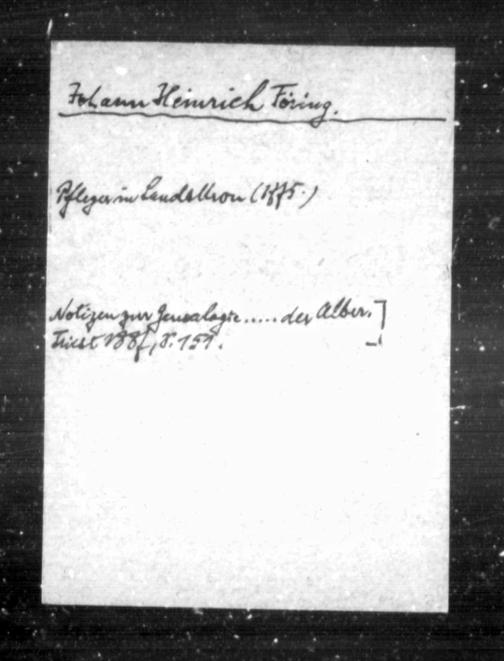 Johann Heinrich Föring.
Pfleger in Landskron (1875.)
Notizen zur Genealogie ..... der Alber.
Triest 1887, S. 151.